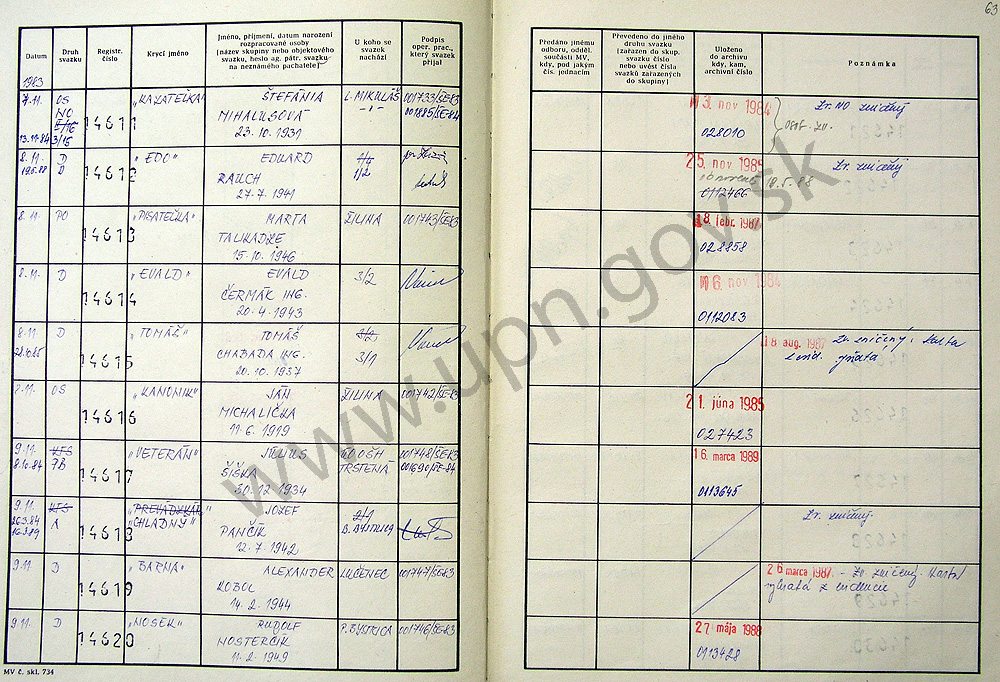 63
Datum
Druh svazku
Registr. číslo
Krycí jméno
Jméno, příjmení, datum narození
rozpracované osoby
(název skupiny nebo objektového
svazku, heslo ag. pátr. svazku
na neznámého pachatele)
U koho se
svazek
nachází
Podpis
oper. prac.,
který svazek
přijal
Předáno jinému
odboru, odděl.
součásti MV,
kdy, pod jakým
čís. jednacím
Převedeno do jiného
druhu svazku
(zařazen do skup.
svazku číslo
nebo uvést čísla
svazků zařazených
do skupiny)
Uloženo
do archivu
kdy, kam,
archivní číslo
Poznámka
1983
7.11. OS 14611 ŠTEFÁNIA L. MIKULÁŠ 001733/ŠE-83
NO MIHALUSOVÁ 001885/ŠE-84
13.11.84 3/16 23.10.1931
3. nov 1984 Zv. NO zničený
028010
8.11. D 14612 "EDO" EDUARD
D RAUCH 1/2
27.7.1941
25. nov 1985 Zv. zničený
obnovené 10.5.88
0113466
8.11. PO 14613 "PISATEĽKA" MARTA ŽILINA 001743/ŠE-83
TALIKADZE
15.10.1946
18. febr. 1987
028858
8.11. D 14614 "EVALD" EVALD 3/2
ČERMÁK ING.
20.4.1943
6. nov 1984
0112083
8.11. D 14615 "TOMÁŠ" TOMÁŠ 3/2
CHABADA ING. 3/1
20.10.1937
18. aug. 1987 Zv. zničený
8.11. OS 14616 "KANONIK" JÁN ŽILINA 001742/ŠE-83
MICHALIČKA
11.6.1919
21. júna 1985
027423
9.11. 14617 "VETERÁN" JÚLIUS 001748/ŠE-83
8.10.84 ŠIŠKA TRSTENÁ 001690/ŠE-84
30.12.1934
16. marca 1989
0113645
9.11. 14618 JOZEF 2/1
26.3.84 A "CHLADNÝ" PANČÍK B. BYSTRICA
12.7.1942
Zv. zničený.
9.11. D 14619 "BARNA" ALEXANDER LUČENEC 001747/ŠE-83
KOBOL
14.2.1944
26. marca 1987 - Zv. zničený. Karta
vybratá z evidencie
9.11. D 14620 "NOSEK" RUDOLF P. BYSTRICA 001746/ŠE-83
NOSTERČÍK
11.2.1949
27. mája 1988
0113428
MV č. skl. 734
www.upn.gov.sk